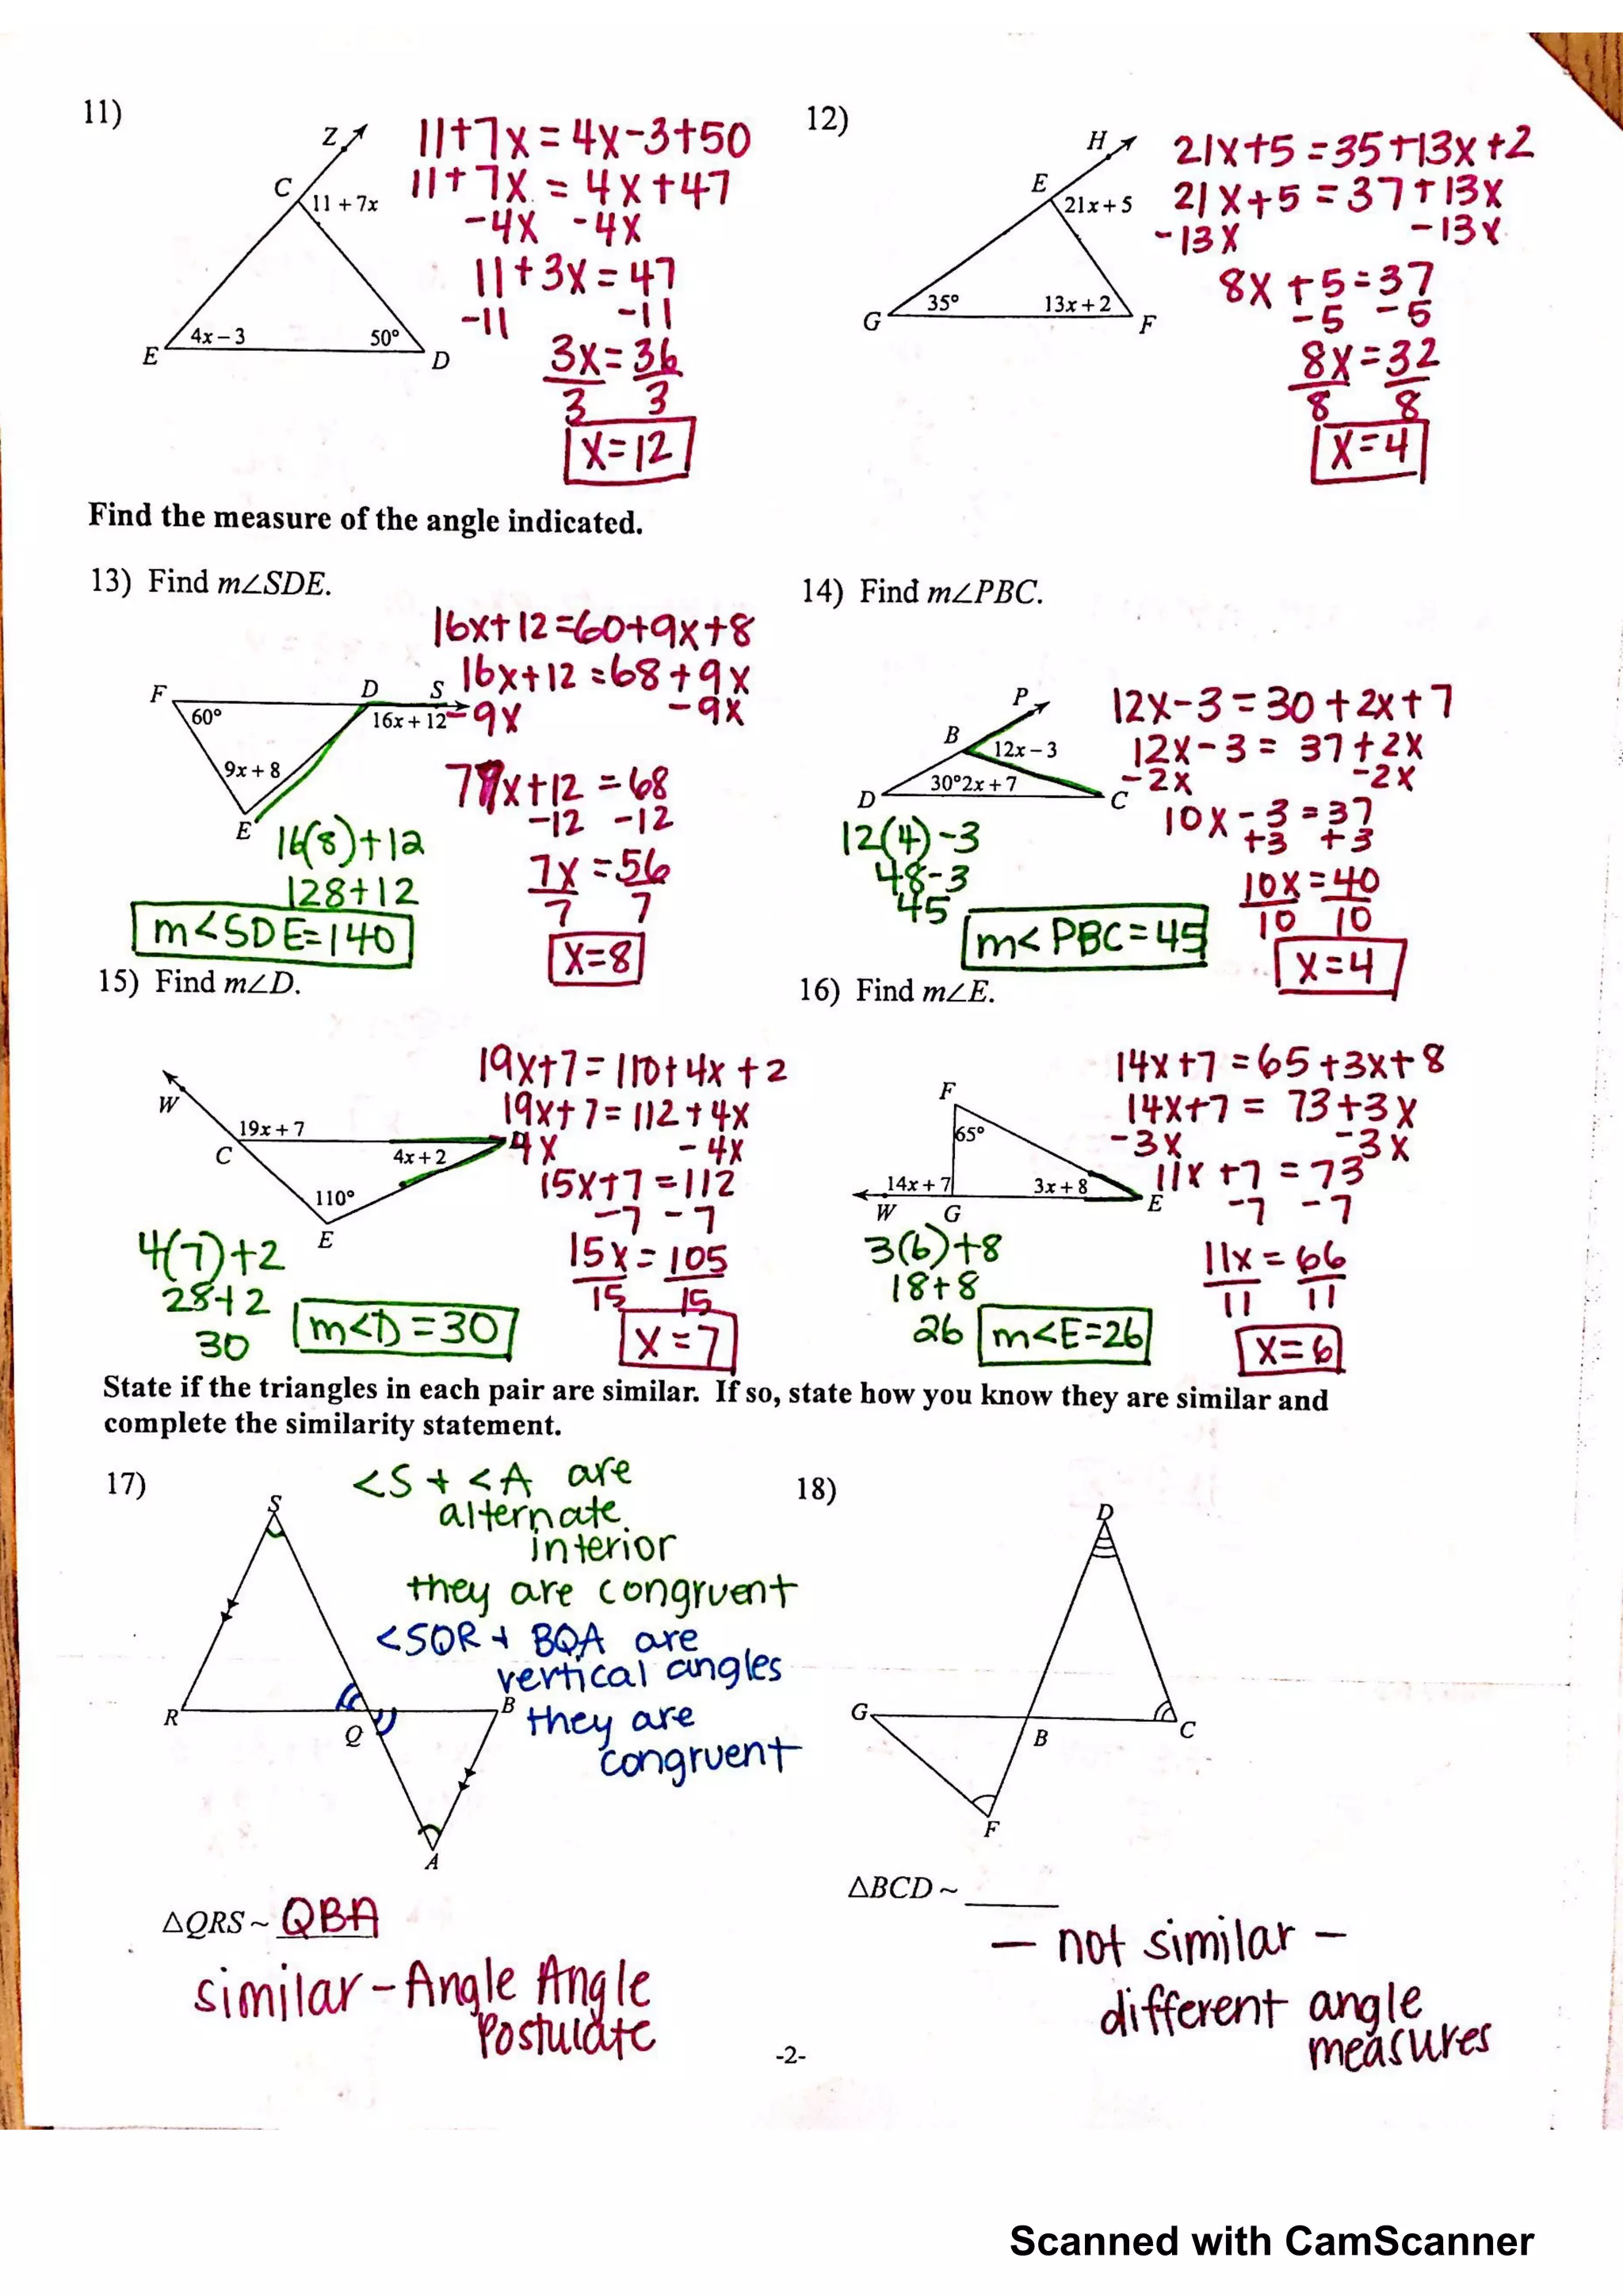 11)
Z
C
11 + 7x
4x − 3
50°
E
D
11+7x = 4x-3+50
11+7x = 4x+47
-4x -4x
11+3x = 47
-11 -11
3x = 36
3 3
x=12
12)
H
E
21x + 5
35°
13x + 2
G
F
21x+5 = 35+13x+2
21x+5 = 37+13x
-13x -13x
8x + 5 = 37
-5 -5
8x = 32
8 8
x=4
Find the measure of the angle indicated.
13) Find m∠SDE.
F
D
S
60°
16x + 12
9x + 8
E
16x+12=60+9x+8
16x+12=68+9x
-9x -9x
7x+12 = 68
-12 -12
7x = 56
7 7
x=8
16(8)+12
128+12
m<SDE=140
14) Find m∠PBC.
P
B
12x − 3
30°
2x + 7
D
C
12x-3 = 30+2x+7
12x-3 = 37+2x
-2x -2x
10x - 3 = 37
+3 +3
10x = 40
10 10
x=4
12(4)-3
48-3
45
m< PBC=45
15) Find m∠D.
W
19x + 7
C
4x + 2
110°
E
19x+7 = 110+4x+2
19x+7 = 112+4x
-4x -4x
15x+7 = 112
-7 -7
15x = 105
15 15
x=7
4(7)+2
28+2
30
m<D=30
16) Find m∠E.
F
65°
14x + 7
3x + 8
W
G
E
14x+7 = 65+3x+8
14x+7 = 73+3x
-3x -3x
11x +7 = 73
-7 -7
11x = 66
11 11
x=6
3(6)+8
18+8
26
m<E=26
State if the triangles in each pair are similar. If so, state how you know they are similar and
complete the similarity statement.
17)
S
R
Q
B
A
<S + <A are
alternate
interior
they are congruent
<SQR + BQA are
vertical angles
they are
congruent
△QRS ~ QBA
similar - Angle Angle
Postulate
18)
D
G
B
C
F
△BCD ~
- not similar -
different angle
measures
-2-
Scanned with CamScanner